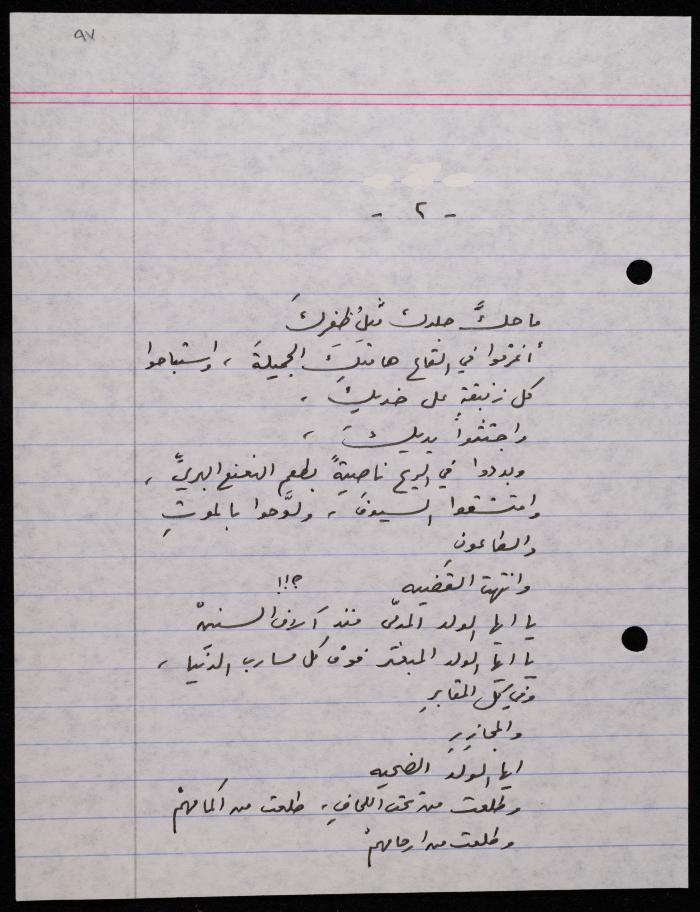 ٩٧
- ٢ -
ما حكَّ جلدك مثلُ ظفركَ
أغرقوا في القاع هامتكَ الجميلةَ ، واستباحوا
كل زنبقة على خديك ،
واجتثوا يديك ،
وبددوا في الريح ناصيةً بطعم النعنع البريِّ ،
وامتشقوا السيوفَ ، ولوَّحوا بالموتِ
والطاعون
وانتهت القضيه ؟!!
يا ايها الولد المدمّى منذ آلاف السنينْ
يا ايها الولد المبعثر فوق كل مسارب الدّنيا ،
وفي كل المقابرِ
والمجازرِ
ايها الولد الضحيه
وطلعت من تحت اللحافِ ، طلعت من اكمامهمْ
وطلعت من ارحامهمْ